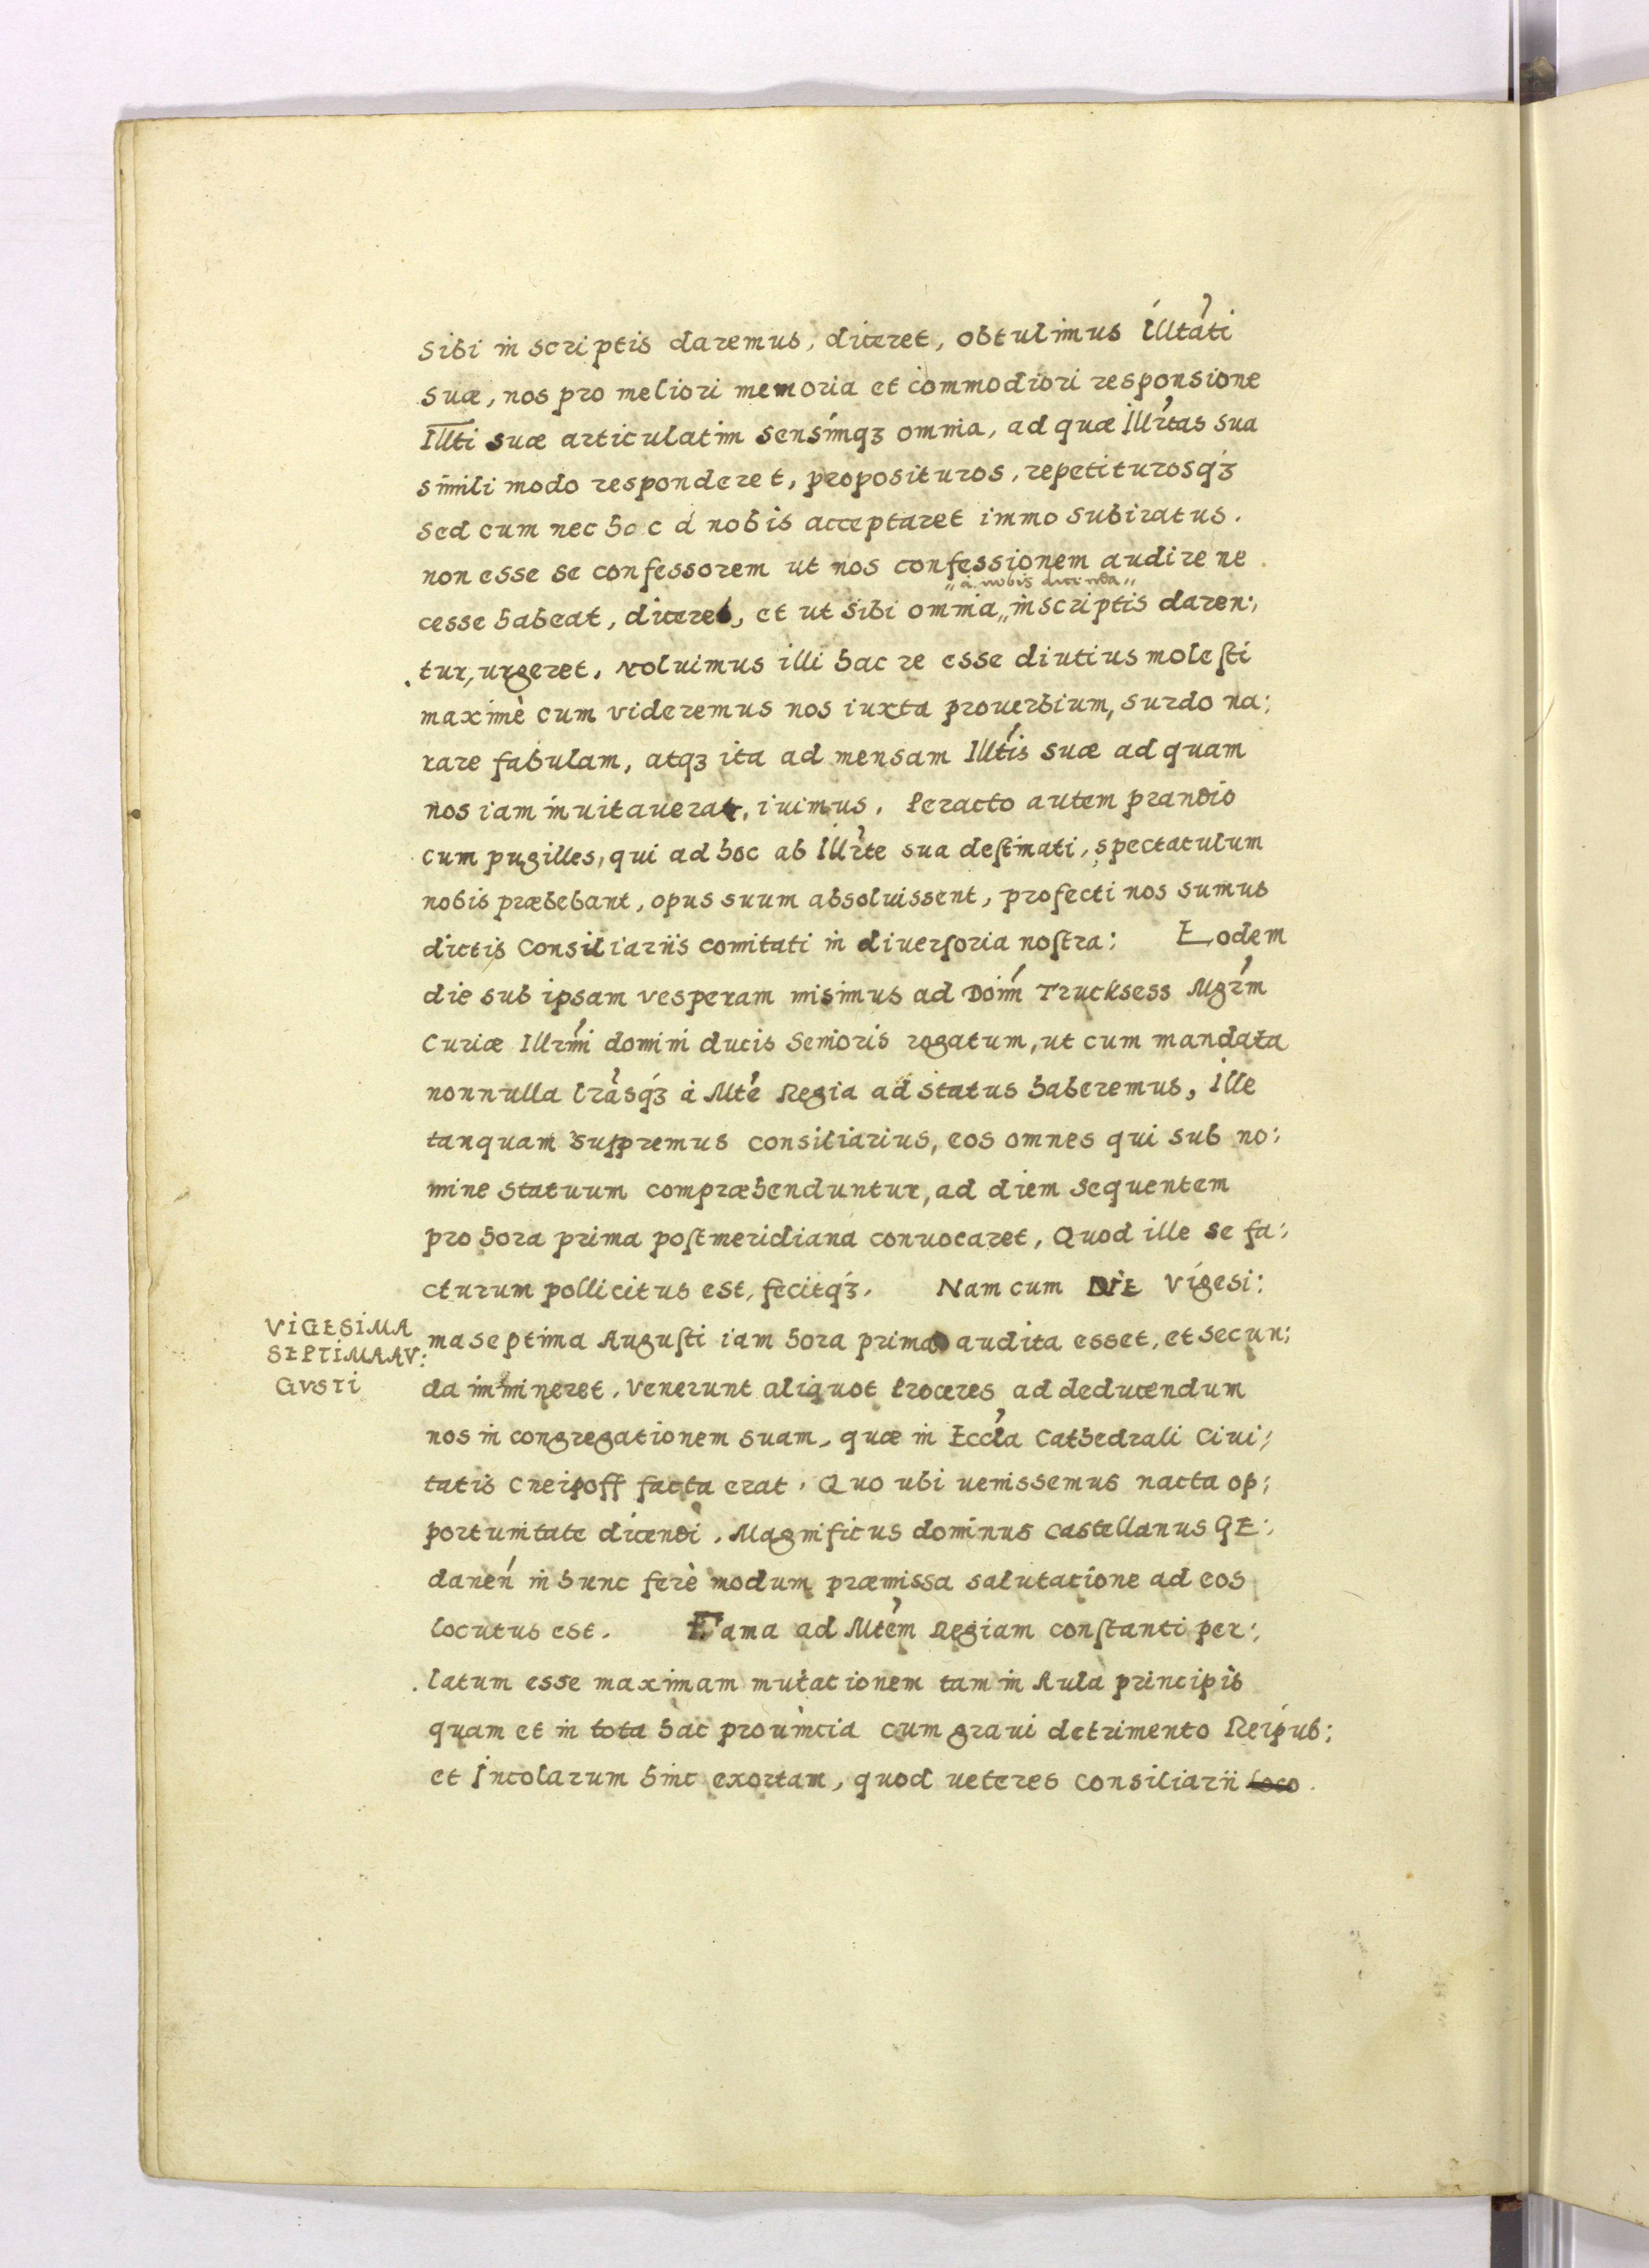 sibi in scriptis daremus, diceret, obtulimus Illtati
suæ, nos pro meliori memoria et commodiori responsione
Illti suæ articulatim sensimqȝ omnia, ad quæ Illrtas sua
simili modo responderet, proposituros, repetiturosqȝ
sed cum nec hoc a nobis acceptaret immo subiratus.
non esse se confessorem ut nos confessionem audire ne
„à nobis dicenda„
cesse habeat, diceret, et ut sibi omnia„ in scriptis daren:,
tur, urgeret, noluimus illi hac re esse diutius molesti
maximè cum videremus nos iuxta prouerbium, surdo na:
rare fabulam, atqȝ ita ad mensam Illtis suæ ad quam
nos iam inuitauerat, iuimus. Peracto autem prandio
cum pugilles, qui ad hoc ab Illrte sua destinati, spectatulum
nobis præhebant, opus suum absoluissent, profecti nos sumus
dictis Consiliariis comitati in diuersoria nostra: Eodem
die sub ipsam vesperam misimus ad Doim Trucksess Mgrm
Curiæ Illrmi domini ducis Senioris rogatum, ut cum mandata
nonnulla lrasqȝ à Mte Regia ad status haberemus, ille
tanquam supremus consiliarius, eos omnes qui sub no:
mine statuum compræhenduntur, ad diem sequentem
pro hora prima postmeridiana conuocaret, Quod ille se fa:
cturum pollicitus est, fecitqȝ. Nam cum DIE vigesi:
VIGESIMA
SEPTIMA AV:
GVSTI
ma septima Augusti iam hora prima audita esset, et secun:
da immineret, venerunt aliquot Proceres ad deducendum
nos in congregationem suam, quæ in Eccla Cathedrali Ciui:
tatis Cneipoff facta erat. Quo ubi uenissemus nacta op:
portunitate dicendi, Magnificus dominus Castellanus GE:
danen in hunc ferè modum præmissa salutatione ad eos
locutus est. Fama ad Mtem Regiam constanti per:
latum esse maximam mutationem tam in Aula principis
quam et in tota hac prouincia cum graui detrimento Reipub:
et Incolarum hinc exortam, quod ueteres consiliarii loco